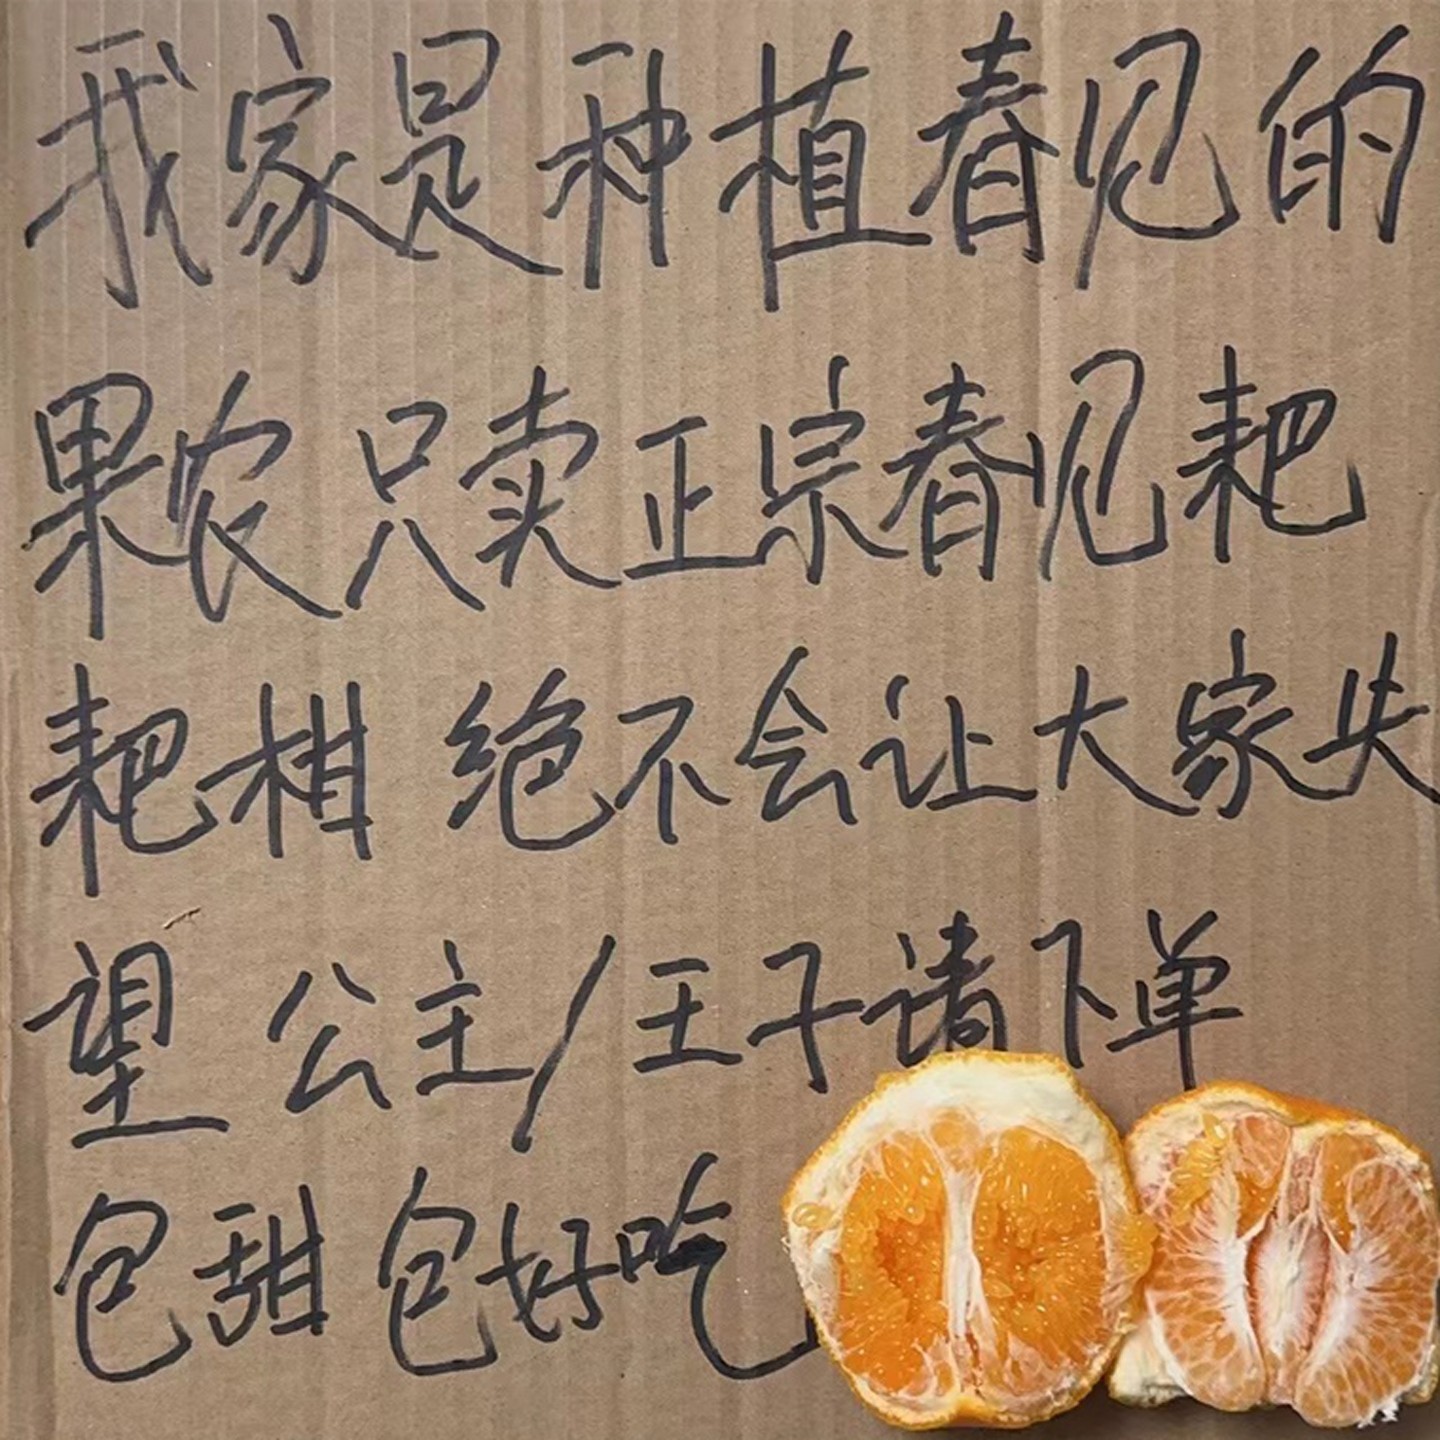 我家是种植春见的
果农 只卖正宗春见耙
耙柑 绝不会让大家失
望 公主/王子请下单
包甜 包好吃